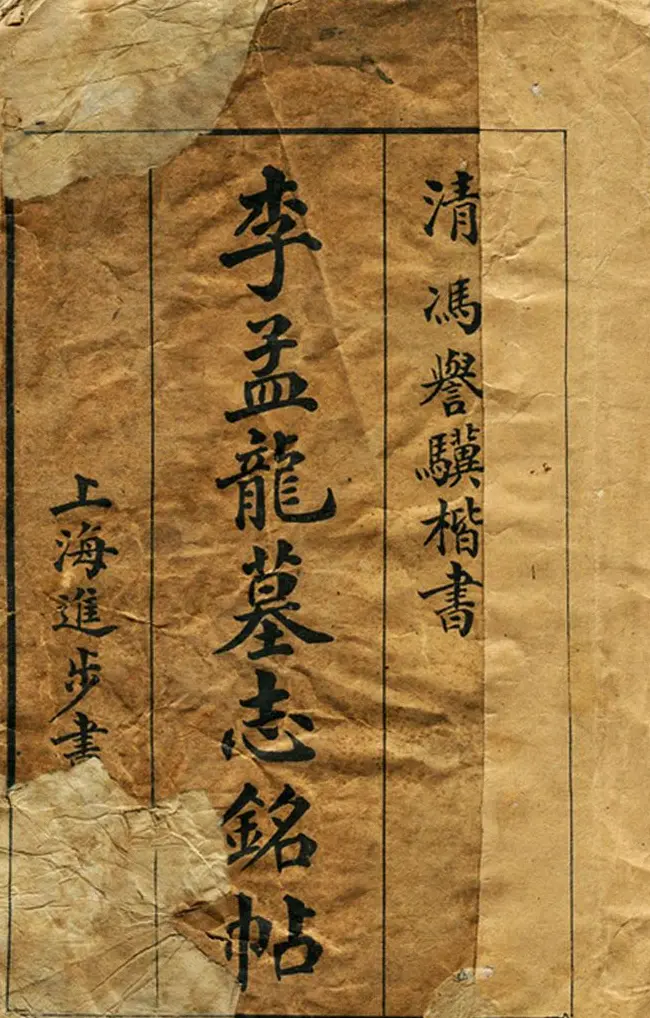 清馮譽驥楷書
李孟龍墓志銘帖
上海進步書